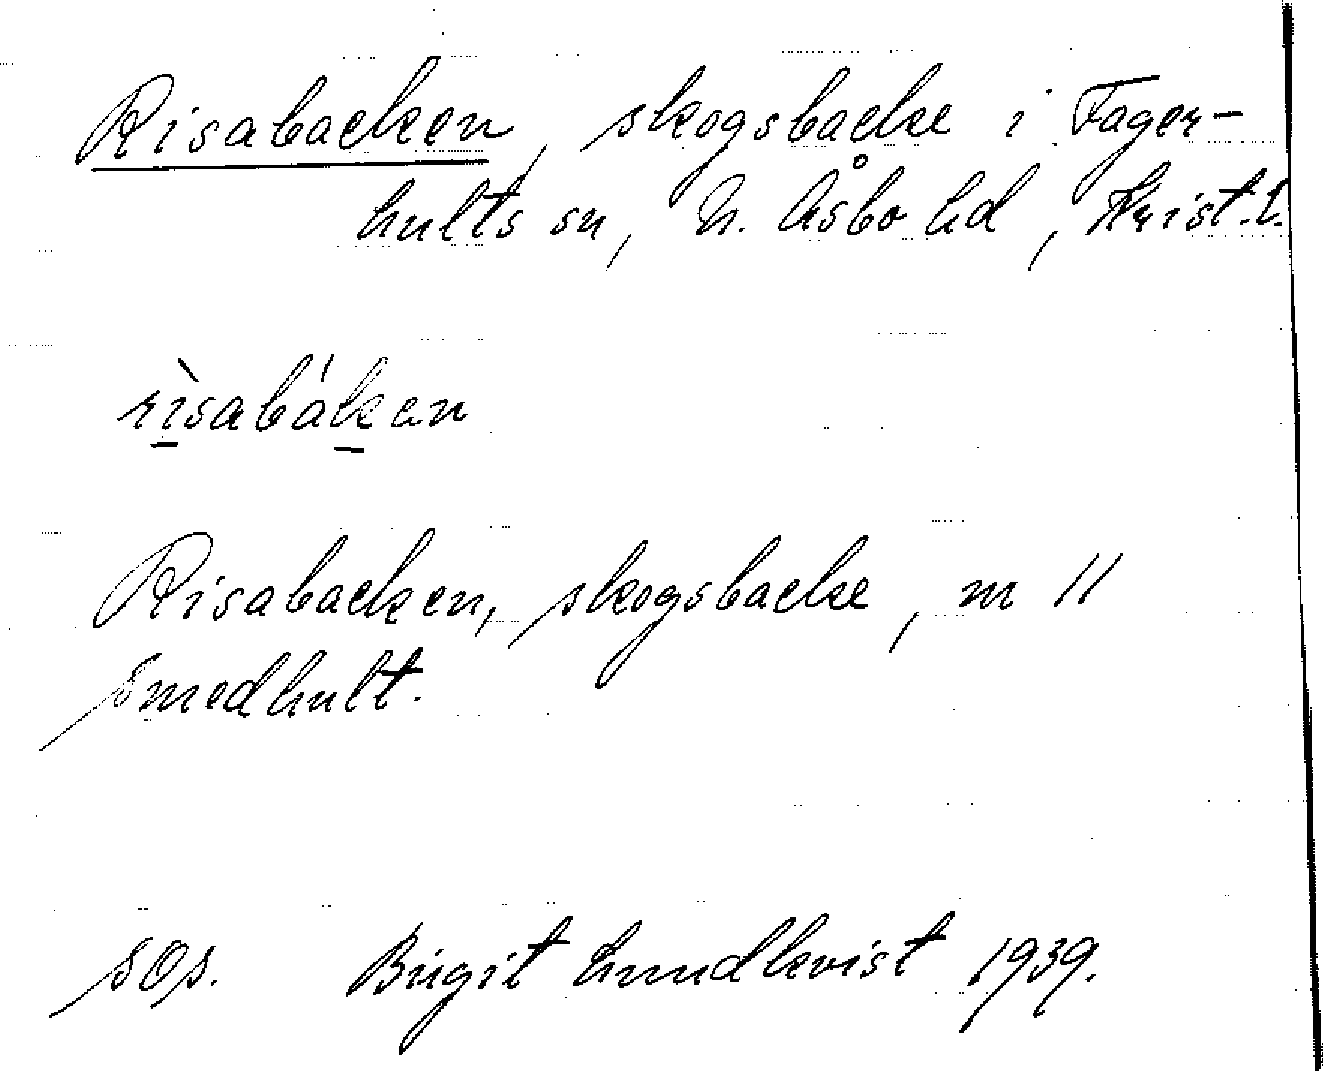 Risabacken, skogsbacke i Fager-
hults sn, N. Åsbo hd, Krist.l.
rìsabákan
Risabacken, skogsbacke, nr 11
Smedhult.
SOs. Birgit Lundkvist 1939.